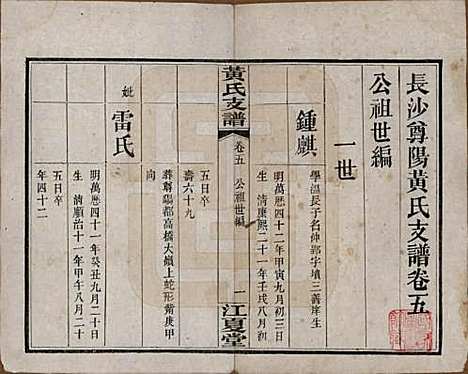 長沙尊陽黃氏支譜卷五
公祖世編
一世
鍾麒
學溫長子名仲郢字壎三善庠生
明萬曆四十二年甲寅九月初三日
生 清康熙二十一年壬戌八月初
黃氏支譜
卷五 公祖世編
一
江夏堂
五日卒
壽六十九
葬尊陽都高橋大嶺上蛇形當庚甲
向
妣
雷氏
明萬曆四十一年癸丑九月二十日
生 清順治十一年甲午八月二十
五日卒
年四十二